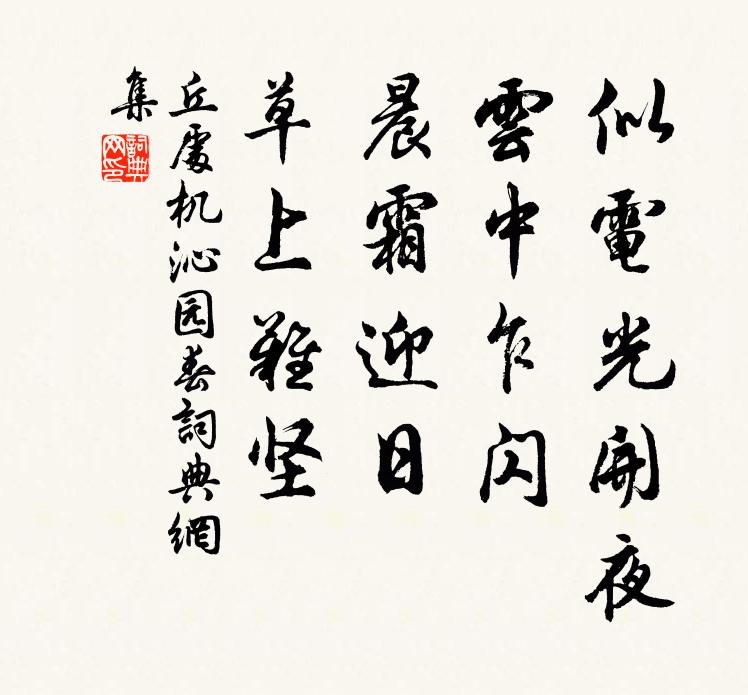 似電光開夜
雲中乍閃
晨霜迎日
草上難坚
丘處机沁园春詞典網
集
詞典网印